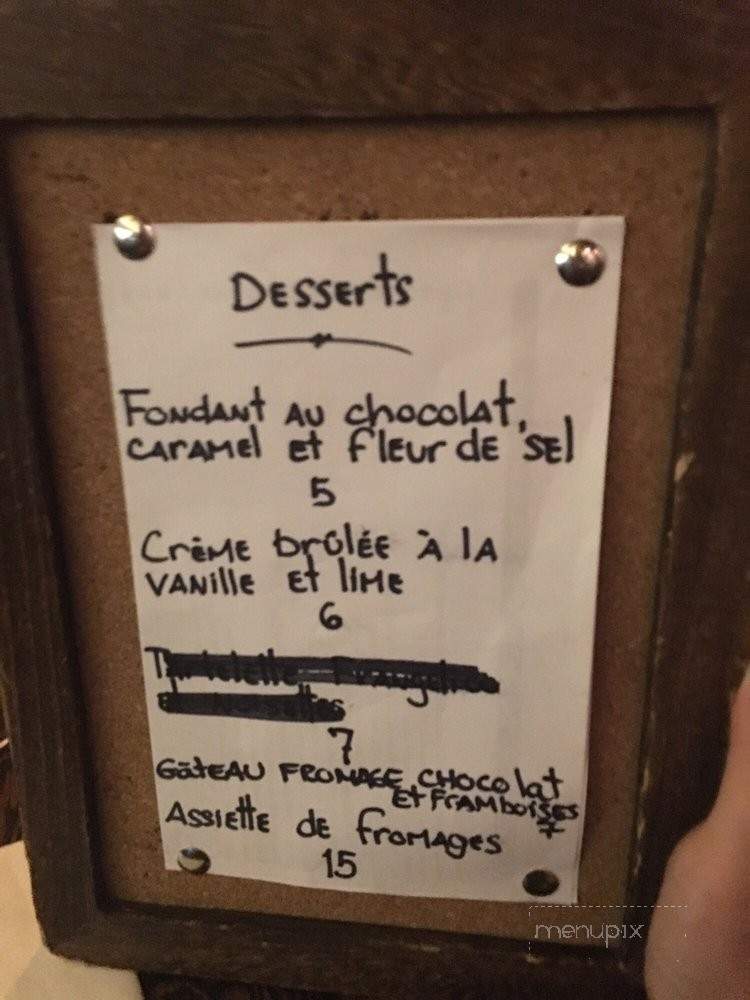 Desserts
Fondant au chocolat,
caramel et fleur de sel
5
Crème brûlée à la
vanille et lime
6
7
Gâteau fromage chocolat
et framboises
7
Assiette de fromages
15
menupix